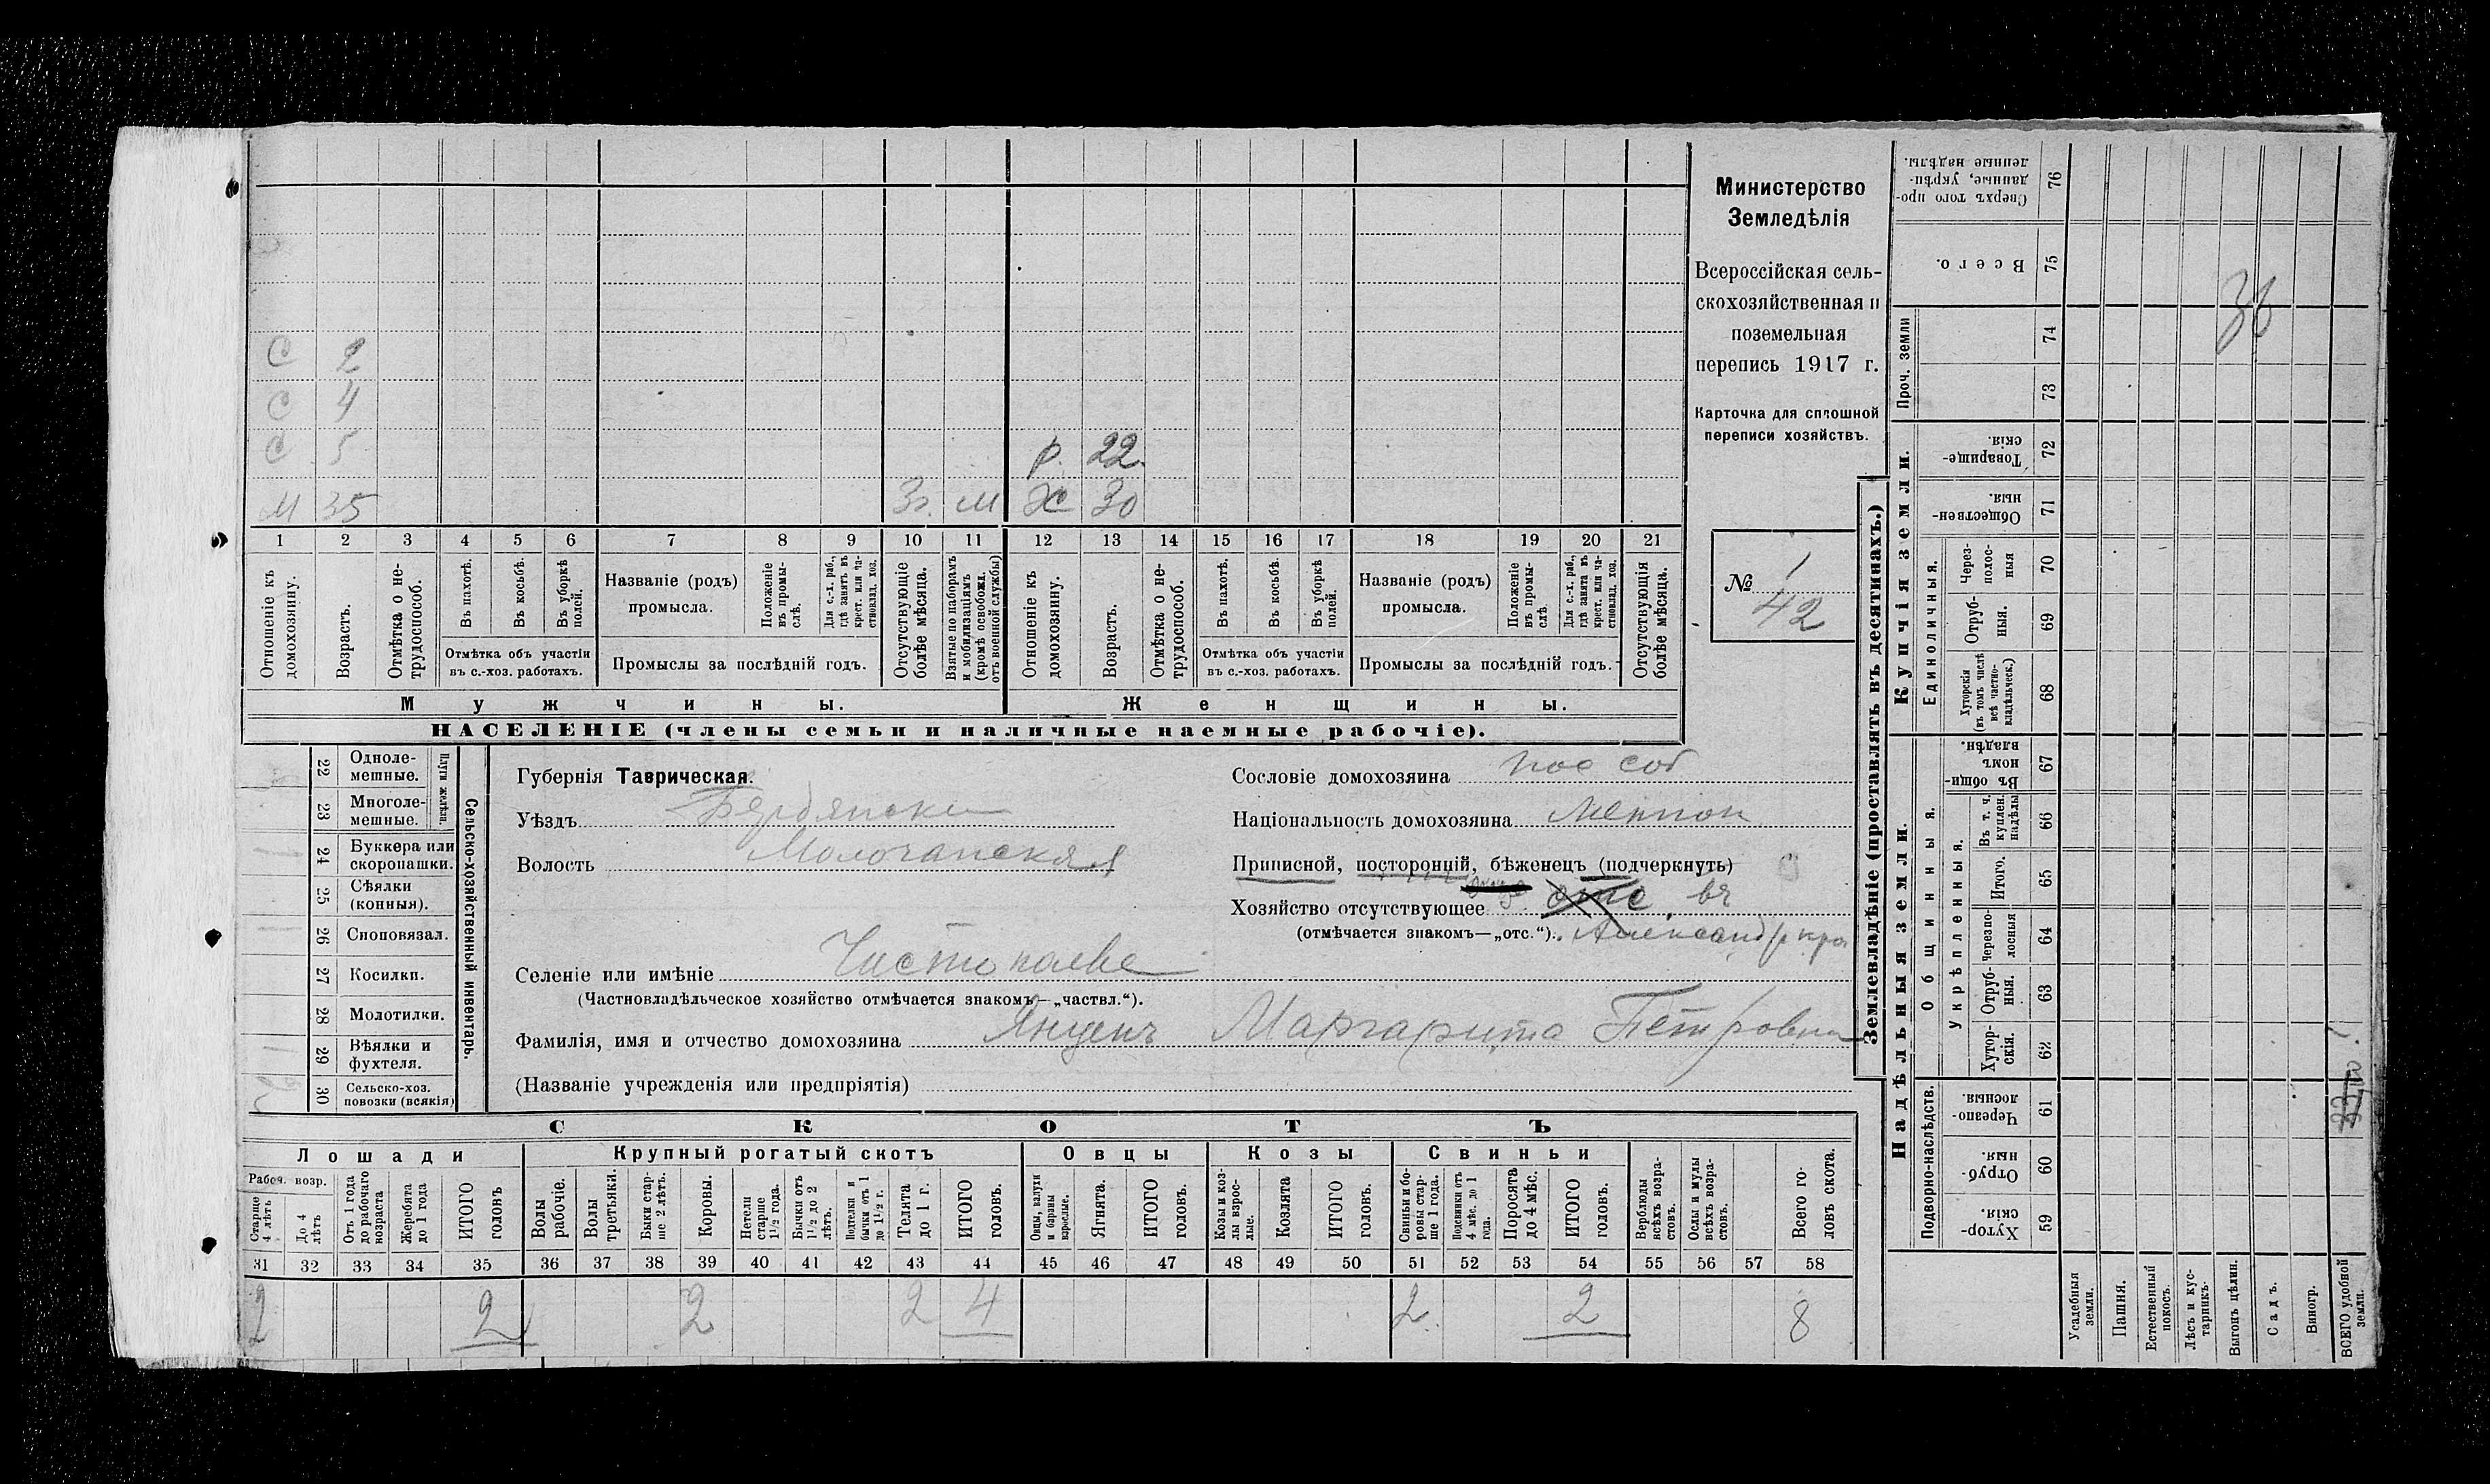 С 2
С 4
С 5 р. 22
М 35 3г. м Ж 30
1 2 3 4 5 6 7 8 9 10 11 12 13 14 15 16 17 18 19 20 21
Отношеніе къ домохозяину.
Возрастъ.
Отмѣтка о не-
трудоспособ.
Въ пахотѣ.
Въ косьбѣ.
Въ уборкѣ
полей.
Отмѣтка объ участіи
въ с.-хоз. работахъ.
Названіе (родъ)
промысла.
Положеніе
въ промы-
слѣ.
Для с.-х. раб.,
гдѣ занятъ въ
крест. или ча-
стновлад. хоз.
Промыслы за послѣдній годъ.
Отсутствующіе
болѣе мѣсяца.
Взятые по наборамъ
и мобилизаціямъ
(кромѣ освобожд.
отъ военной службы)
Отношеніе къ
домохозяину.
Возрастъ.
Отмѣтка о не-
трудоспособ.
Въ пахотѣ.
Въ косьбѣ.
Въ уборкѣ
полей.
Отмѣтка объ участіи
въ с.-хоз. работахъ.
Названіе (родъ)
промысла.
Положеніе
въ промы-
слѣ.
Для с.-х. раб.,
гдѣ занята въ
крест. или ча-
стновлад. хоз.
Промыслы за послѣдній годъ.
Отсутствующія
болѣе мѣсяца.
Мужчины.
Женщины.
НАСЕЛЕНІЕ (члены семьи и наличные наемные рабочіе).
Министерство
Земледѣлія
Всероссійская сель-
скохозяйственная и
поземельная
перепись 1917 г.
Карточка для сплошной
переписи хозяйствъ.
№ 1
42
22 Одноле-
мешные.
23 Многоле-
мешные.
Плуги желѣзн.
24 Буккера или
скоропашки.
25 Сѣялки
(конныя).
26 Сноповязал.
27 Косилки.
28 Молотилки.
29 Вѣялки и
фухтеля.
30 Сельско-хоз.
повозки (всякія)
Сельско-хозяйственный инвентарь.
Губернія Таврическая.
Уѣздъ Бердянски
Волость Молочанская
Сословіе домохозяина пос соб
Національность домохозяина менион
Приписной, посторонній, бѣженецъ (подчеркнуть)
Хозяйство отсутствующее отс. въ
(отмѣчается знакомъ—„отс.“). Александркрон
Селеніе или имѣніе Чистополье
(Частновладѣльческое хозяйство отмѣчается знакомъ—„частвл.“).
Фамилія, имя и отчество домохозяина Янценъ Маргарита Петровна
(Названіе учрежденія или предпріятія)
СКОТЪ
Лошади Крупный рогатый скотъ Овцы Козы Свиньи
Рабоч. возр.
Старше
4 лѣтъ
До 4
лѣтъ
Отъ 1 года
до рабочаго
возраста
Жеребята
до 1 года
ИТОГО
головъ
Волы
рабочіе.
Волы
третьяки.
Быки стар-
ше 2 лѣтъ.
Коровы.
Нетели
старше
1½ года.
Бычки отъ
1½ до 2
лѣтъ.
Подтелки и
бычки отъ 1
до 1½ г.
Телята
до 1 г.
ИТОГО
головъ.
Овцы, валухи
и бараны
взрослые.
Ягнята.
ИТОГО
головъ.
Козы и коз-
лы взрос-
лые.
Козлята
ИТОГО
головъ.
Свиньи и бо-
ровы стар-
ше 1 года.
Подсвинки отъ
4 мѣс. до 1
года.
Поросята
до 4 мѣс.
ИТОГО
головъ.
Верблюды
всѣхъ возра-
стовъ.
Ослы и мулы
всѣхъ возра-
стовъ.
Всего го-
ловъ скота.
31 32 33 34 35 36 37 38 39 40 41 42 43 44 45 46 47 48 49 50 51 52 53 54 55 56 57 58
2 2 2 2 4 2 2 8
Землевладѣніе (проставлять въ десятинахъ.)
Купчія земли.
Надѣльныя земли.
Проч. земли
Единоличныя.
Общинныя.
Укрѣпленныя.
Подворно-наслѣдств.
Сверхъ того про-
данные, укрѣп-
ленные надѣлы. 76
Всего. 75
36
74
73
Товарище-
скія. 72
Обществен-
ныя. 71
Через-
полос-
ныя 70
Отруб-
ныя. 69
Хуторскія
(въ томъ числѣ
всѣ частно-
владѣльческ.) 68
Въ общи-
номъ
владѣн. 67
Въ т. ч.
куплен.
надѣлы 66
Итого. 65
Черезпо-
лосныя 64
Отруб-
ныя. 63
Хутор-
скія. 62
Черезпо-
лосныя. 61
Отруб-
ныя. 60
Хутор-
скія. 59
Усадебныя
земли.
Пашня.
Естественный
покосъ.
Лѣсъ и кус-
тарникъ.
Выгонъ цѣлин.
Садъ.
Виногр.
ВСЕГО удобной
земли.